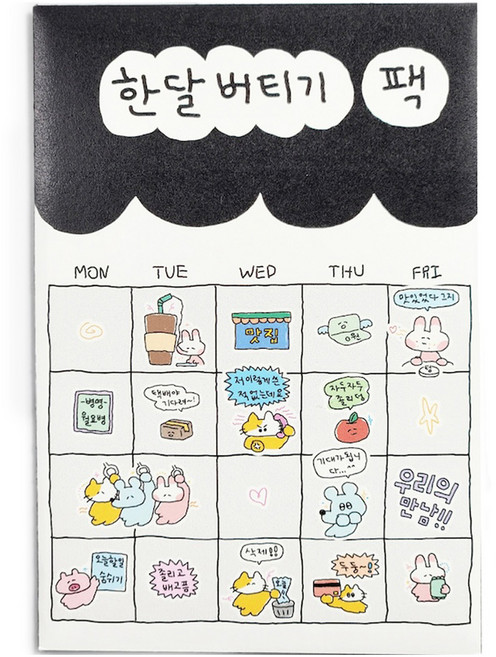 한달 버티기 팩
MON TUE WED THU FRI
맛집
0원
맛있었다 그지
-병명-
월요병
택배야
기다려~!
저 이렇게 쓴
적 없는데요
자두자두
기대가 됩니
다...^^
우리의
만남!!
오늘 할 일
숨쉬기
졸리고
배고픔
삭제!!
두둥~!